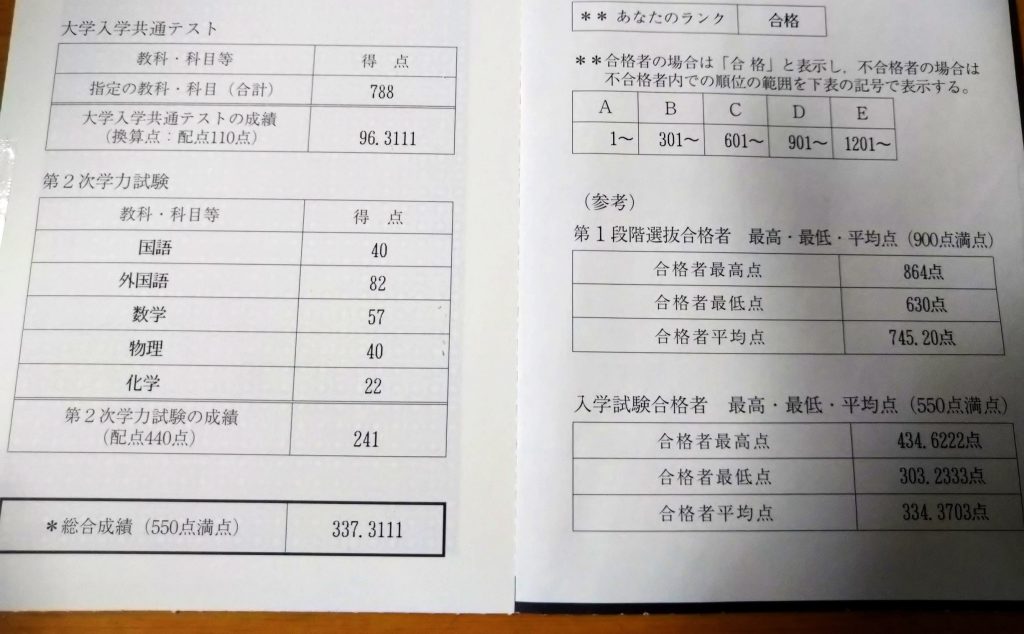 大学入学共通テスト
教科・科目等 得 点
指定の教科・科目（合計） 788
大学入学共通テストの成績
（換算点：配点110点） 96.3111
第２次学力試験
教科・科目等 得 点
国語 40
外国語 82
数学 57
物理 40
化学 22
第２次学力試験の成績
（配点440点） 241
＊総合成績（550点満点） 337.3111
＊＊ あなたのランク 合格
＊＊合格者の場合は「合 格」と表示し，不合格者の場合は
不合格者内での順位の範囲を下表の記号で表示する。
A B C D E
1～ 301～ 601～ 901～ 1201～
（参考）
第１段階選抜合格者 最高・最低・平均点（900点満点）
合格者最高点 864点
合格者最低点 630点
合格者平均点 745.20点
入学試験合格者 最高・最低・平均点（550点満点）
合格者最高点 434.6222点
合格者最低点 303.2333点
合格者平均点 334.3703点